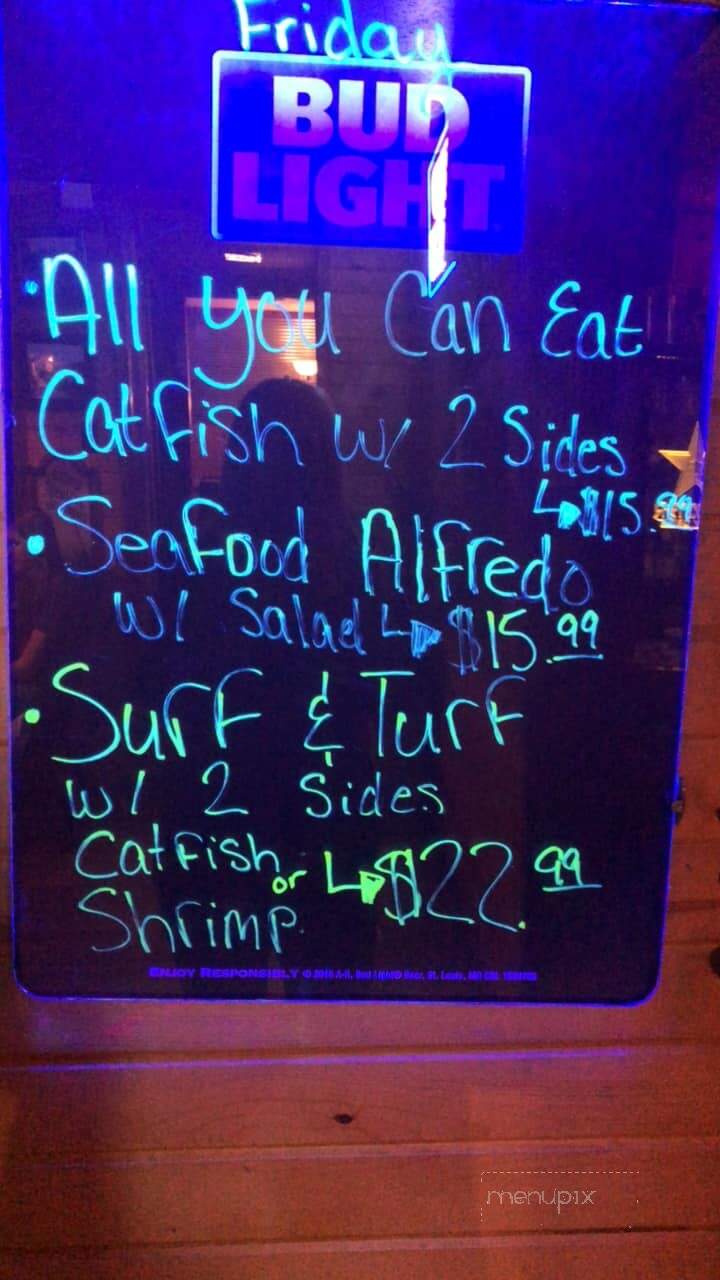 Friday
BUD
LIGHT
• All you Can Eat
Catfish w/ 2 Sides
↳$15.99
• Seafood Alfredo
w/ Salad ↳$15.99
• Surf & Turf
w/ 2 Sides
Catfish or ↳$22.99
Shrimp
ENJOY RESPONSIBLY
menupix